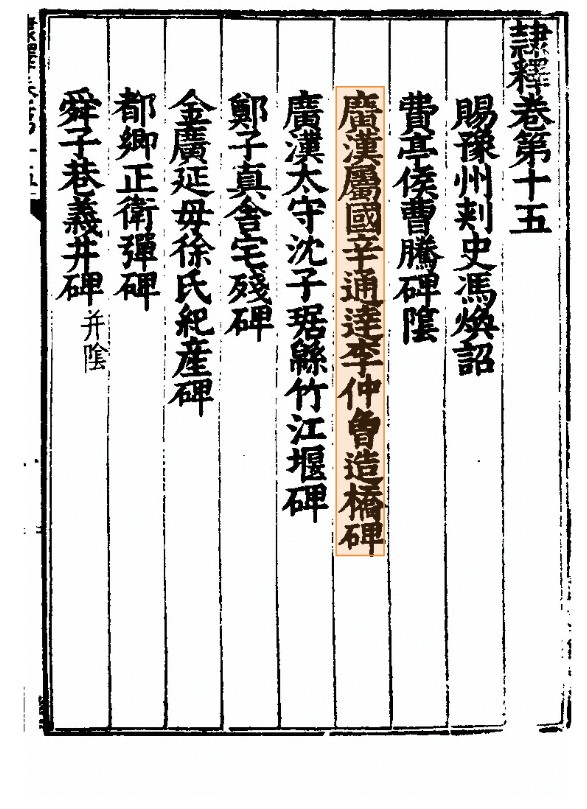 隸釋卷第十五
賜豫州刺史馮煥詔
費亭侯曹騰碑陰
廣漢屬國辛通達李仲曾造橋碑
廣漢太守沈子琚緜竹江堰碑
鄭子真舍宅殘碑
金廣延母徐氏紀産碑
都鄉正衛彈碑
舜子巷義井碑并陰